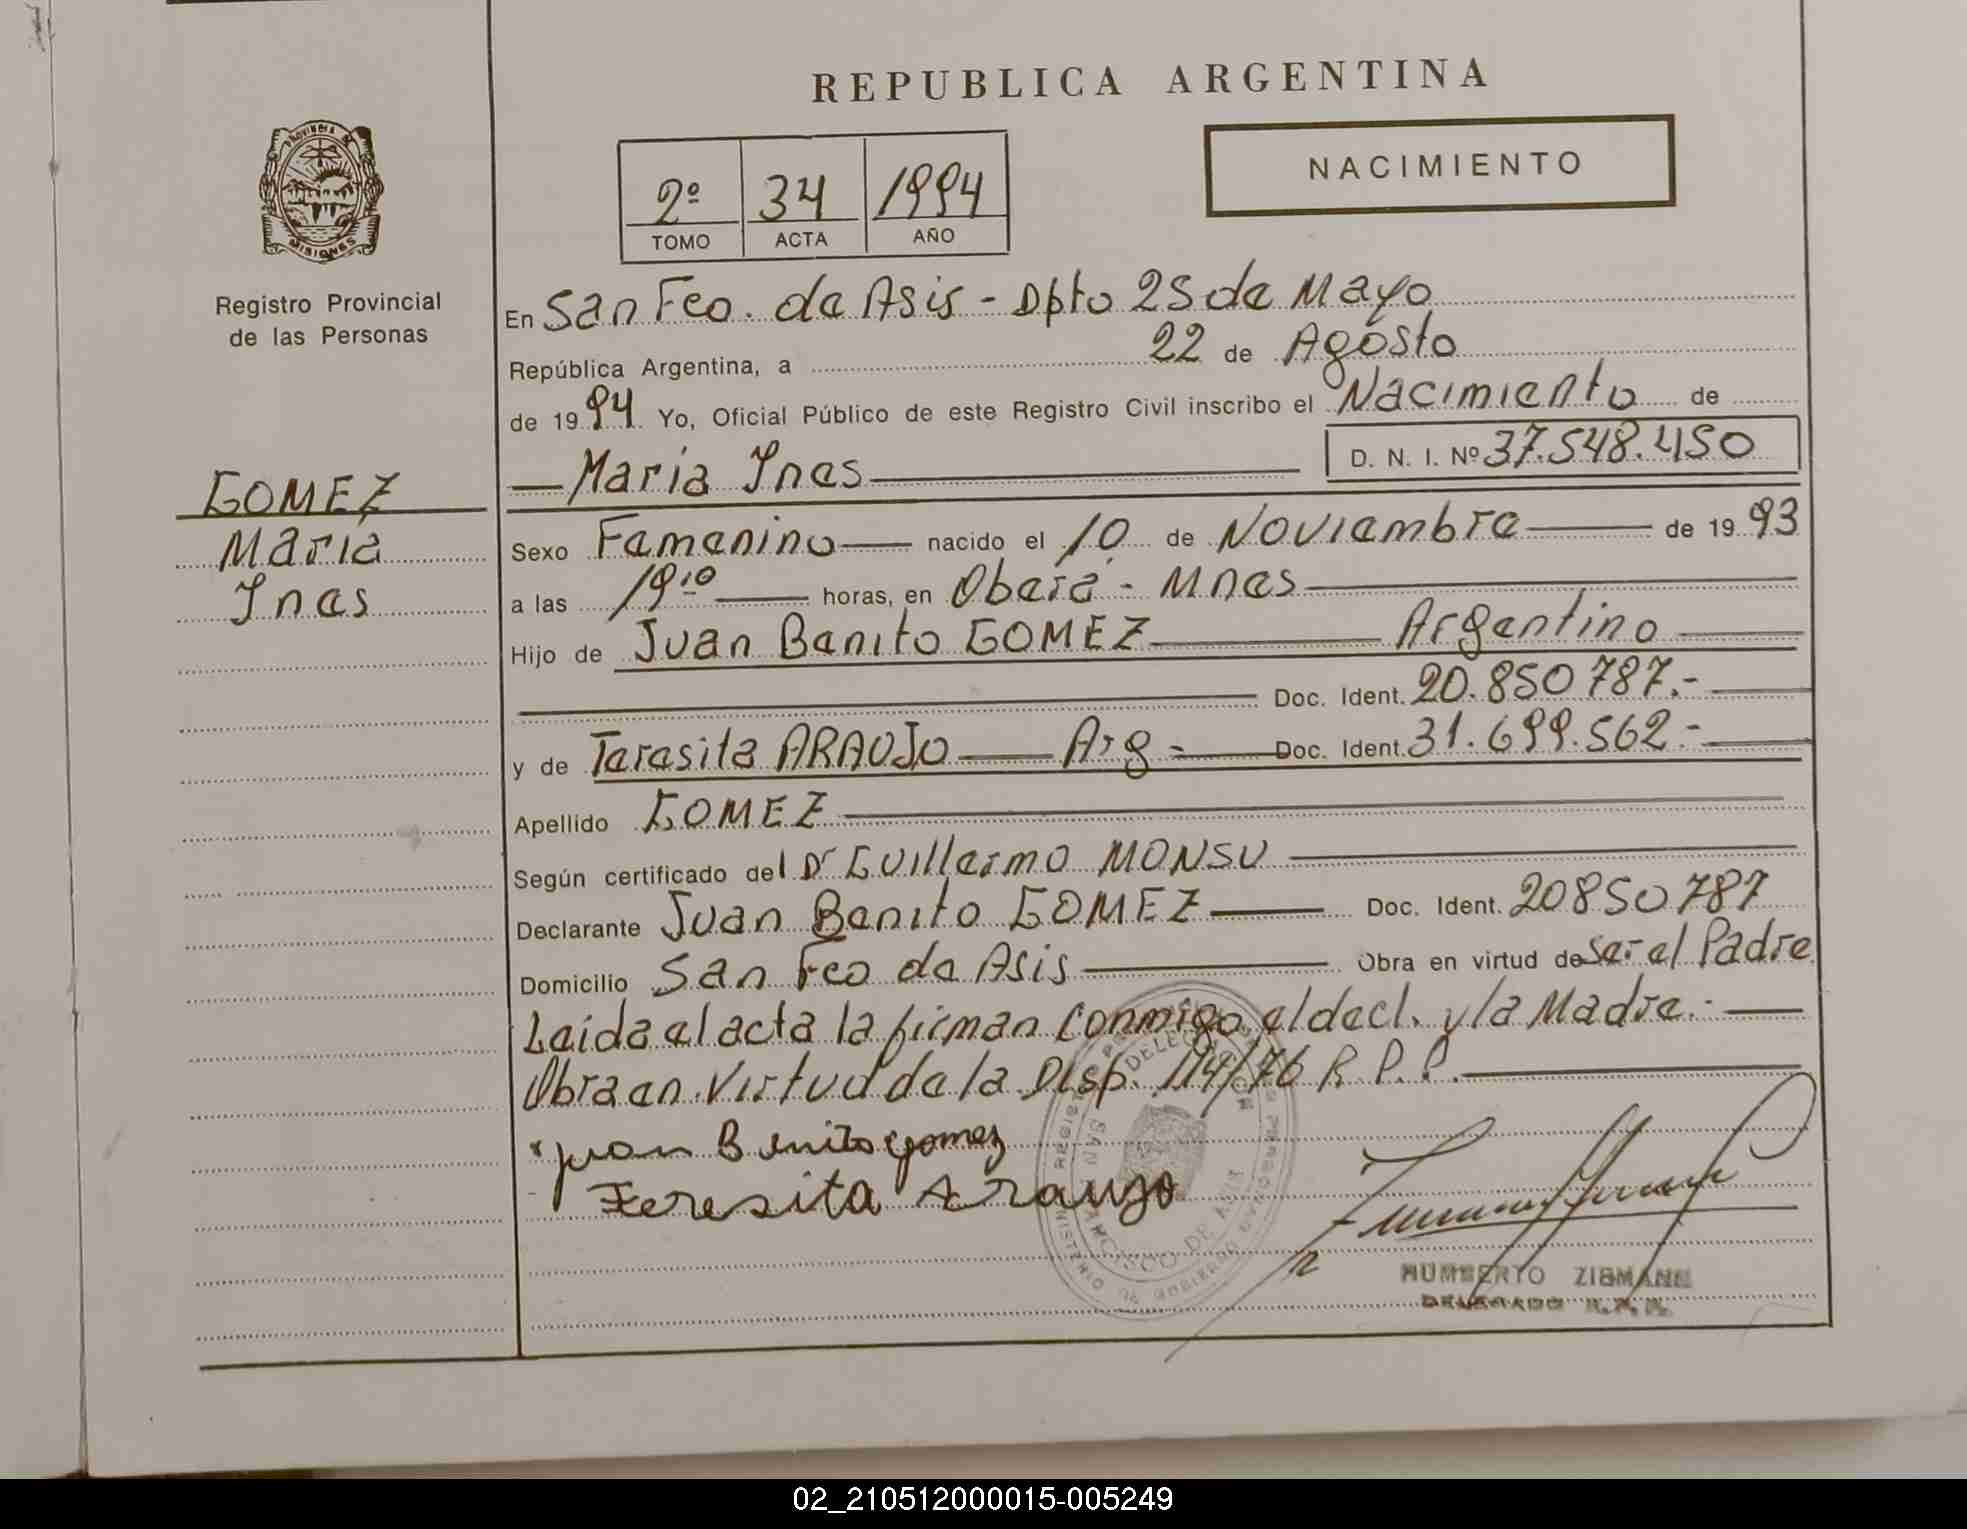 REPUBLICA ARGENTINA
NACIMIENTO
2º 34 1994
TOMO ACTA AÑO
PROVINCIA DE
MISIONES
Registro Provincial
de las Personas
GOMEZ
Maria
Ines
En San Fco. de Asis - Dpto 25 de Mayo
República Argentina, a 22 de Agosto
de 1994 Yo, Oficial Público de este Registro Civil inscribo el Nacimiento de
Maria Ines D. N. I. Nº 37.548.450
Sexo Femenino nacido el 10 de Noviembre de 1993
a las 19:10 horas, en Oberá - Mnes
Hijo de Juan Benito GOMEZ Argentino
Doc. Ident. 20.850787.-
y de Teresita ARAUJO Arg - Doc. Ident. 31.699.562.-
Apellido GOMEZ
Según certificado del Dr Guillermo MONSU
Declarante Juan Benito GOMEZ Doc. Ident. 20850787
Domicilio San Fco de Asis Obra en virtud de ser el Padre
Leida el acta la firman conmigo el decl. y la Madre.-
Obra en virtud de la Disp. 114/76 R.P.P.
Juan Benito Gomez
Teresita Araujo
HUMBERTO ZIEMANN
DELEGADO R.P.P.
REGISTRO PROVINCIAL DE LAS PERSONAS
DELEGACION
SAN FRANCISCO DE ASIS
MINISTERIO DE GOBIERNO
02_210512000015-005249